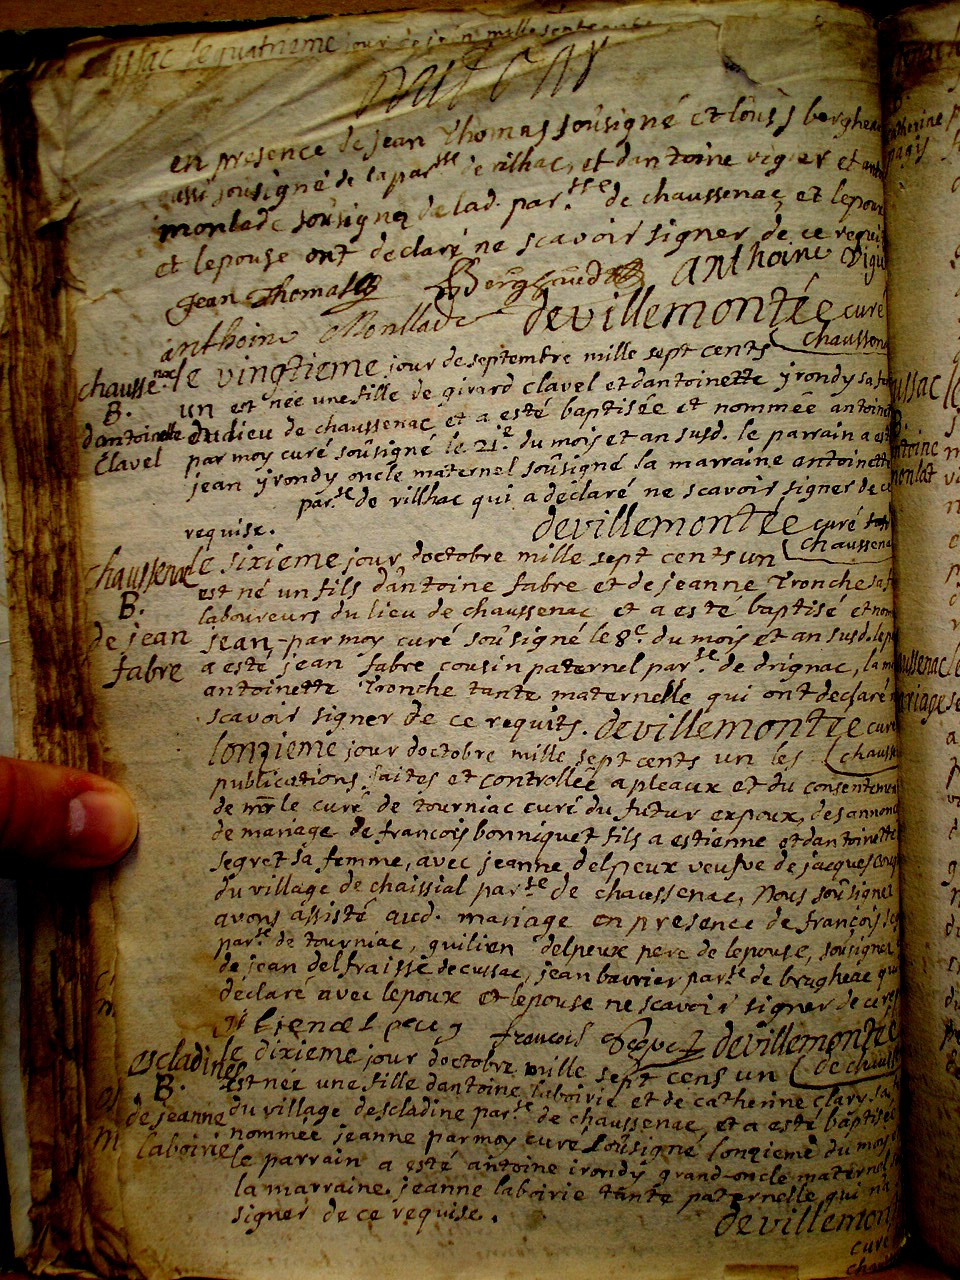 le quatrieme jour de juin mille sept cents
en presence de jean Thomas soûsigné et loüis berghea
aussi soûsigné de la parsse de rilhac, et dantoine vigier et ant
monlade soûsignez de lad. parsse de chaussenac et lepoux
et lepouse ont declaré ne scavoir signer de ce requi
jean Thomas Berghaud anthoine Vigi
anthoine Monllade devillemontée curé
chaussen
chaussenac le vingtieme jour de septembre mille sept cents
B. un est née une fille de girard clavel et dantoinette yrondy sa fe
dantoinette dudieu de chaussenac et a esté baptisée et nommée antoine
Clavel par moy curé soûsigné le 21e du mois et an susd. le parrain a est
jean yrondy oncle maternel soûsigné la marraine antoinette
parsse de rillhac qui a declaré ne scavoir signer de ce
requise. devillemontée curé
chaussena
chaussenac le sixieme jour doctobre mille sept cents un
B. est né un fils dantoine fabre et de jeanne Tronche sa f
laboureurs du lieu de chaussenac et a este baptisé et nom
de jean jean, par moy curé soûsigné le 8e du mois et an susd. le pa
fabre a esté jean fabre cousin paternel parsse de drignac, la m
antoinette Tronche tante maternelle qui ont declaré n
scavoir signer de ce requits. devillemontée curé
lonzieme jour doctobre mille sept cents un les chausse
publications faites et controllée a pleaux et du consenteme
de mr le curé de tourniac curé du futur expoux, des annonc
de mariage de francois bonniquet fils a estienne et dantoinette
segret sa femme, avec jeanne delpeux veufve de jacques
du village de chaissial parsse de chaussenac, Nous soûsignez
avons assisté aud. mariage en presence de françois se
parsse de tourniac, guilien delpeux pere de lepouse, soûsignez
de jean delfraissé de cussac, jean bavrier parsse de bragheac qu
declaré avec lepoux et lepouse ne scavoir signer de ce re
francois devillemontée
de chauss
escladines le dixieme jour doctobre mille sept cens un
B. est née une fille dantoine laboirie et de catherine clary sa
de jeanne du village descladine parsse de chaussenac, et a esté baptisée
laboirie nommée jeanne par moy curé soûsigné lonzieme du moy
le parrain a esté antoine irondy grand-oncle maternel
la marraine jeanne laboirie tante paternelle qui n
signer de ce requise. devillemon
curé
chau